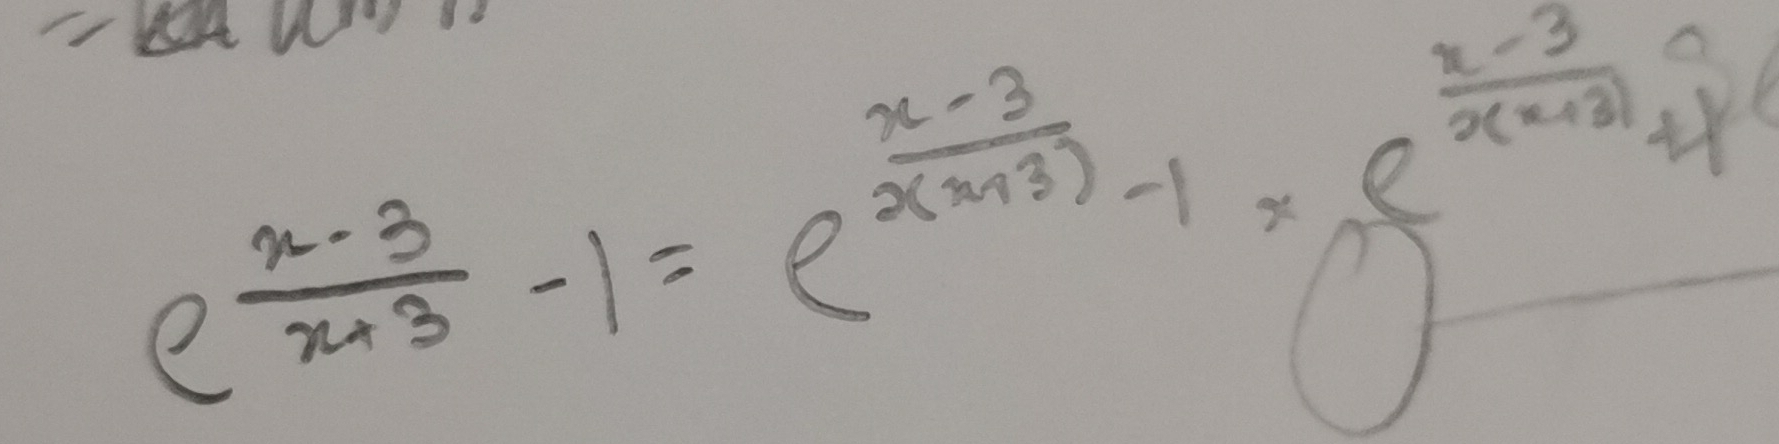 =
e^{\frac{x-3}{x+3}} -1 = e^{\frac{x-3}{x(x+3)}} -1 × e^{\frac{x-3}{x(x+3)}}